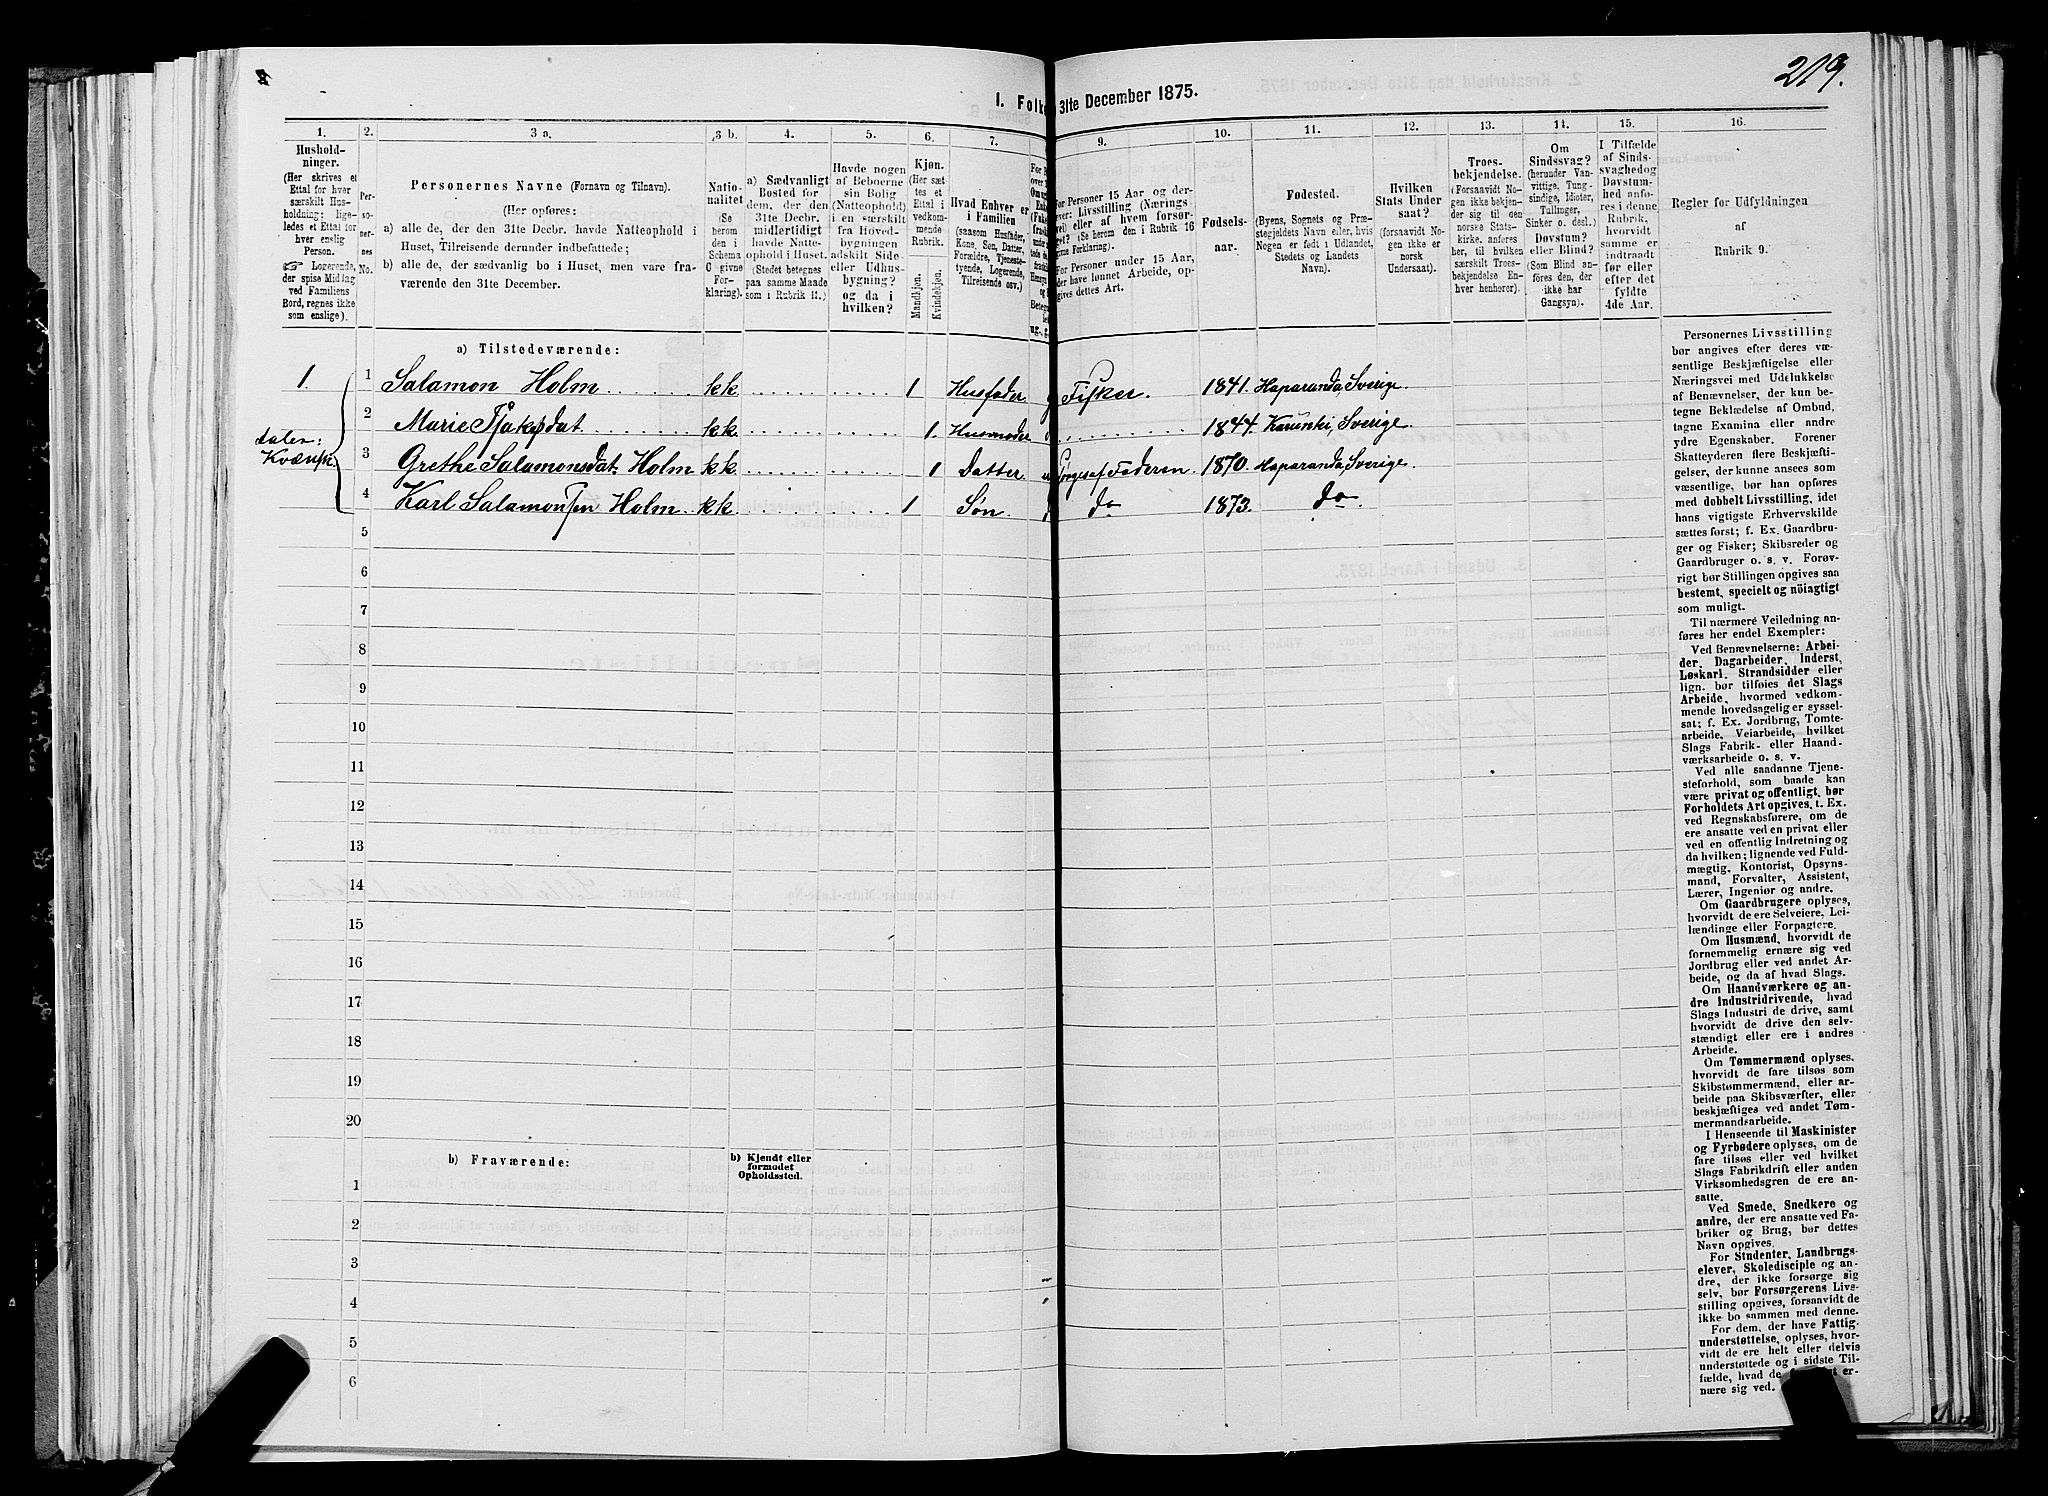 219.
1. Folke 31te December 1875.
1.
2.
3 a.
3 b.
4.
5.
6.
7.
9.
10.
11.
12.
13.
14.
15.
16.
Hushold-
ninger.
(Her skrives et
Ettal for hver
særskilt Hus-
holdning; lige-
ledes et Ettal for
hver enslig
Person.
☞ Logerende,
der spise Middag
ved Familiens
Bord, regnes ikke
som enslige).
Per-
so-
ner-
nes
No.
Personernes Navne (Fornavn og Tilnavn).
(Her opføres:
a) alle de, der den 31te Decbr. havde Natteophold i
Huset, Tilreisende derunder indbefattede;
b) alle de, der sædvanlig bo i Huset, men vare fra-
værende den 31te December.
Natio-
nalitet
(Se
herom
den i
Schema
C givne
For-
klaring).
a) Sædvanligt
Bosted for
dem, der den
31te Decbr.
midlertidigt
havde Natte-
ophold i Huset.
(Stedet betegnes
paa samme Maade
som i Rubrik 11.)
Havde nogen
af Beboerne
sin Bolig
(Natteophold)
i en særskilt
fra Hoved-
bygningen
adskilt Side-
eller Udhus-
bygning?
og da i
hvilken?
Kjøn.
(Her sæt-
tes et
Ettal i
vedkom-
mende
Rubrik.
Mandkjøn.
Kvindekjøn.
Hvad Enhver er
i Familien
(saasom Husfader,
Kone, Søn, Datter,
Forældre, Tjeneste-
tyende, Logerende,
Tilreisende osv.)
For Personer 15 Aar og der-
over: Livsstilling (Nærings
vei) eller af hvem forsør-
get? (Se herom den i Rubrik 16
givne Forklaring).
For Personer under 15 Aar,
der have lønnet Arbeide, op-
gives dettes Art.
Fødsels-
aar.
Fødested.
(Byens, Sognets og Præ-
stegjeldets Navn eller, hvis
Nogen er født i Udlandet,
Stedets og Landets
Navn).
Hvilken
Stats Under
saat?
(forsaavidt No-
gen ikke er
norsk
Undersaat).
Troes-
bekjendelse.
(Forsaavidt No-
gen ikke bekjen-
der sig til den
norske Stats-
kirke, anføres
her, til hvilken
særskilt Troes-
bekjendelse En-
hver henhører).
Om
Sindssvag?
(herunder Van-
vittige, Tung-
sindige, Idioter,
Tullinger,
Sinker o. desl.)
Døvstum?
eller Blind?
(Som Blind an-
føres den, der
ikke har
Gangsyn).
I Tilfælde
af Sinds-
svaghed og
Døvstum-
hed anfø-
res i denne
Rubrik,
hvorvidt
samme er
indtraadt
før eller
efter det
fyldte
4de Aar.
Regler for Udfyldningen
af
Rubrik 9.
a) Tilstedeværende:
1. 1 Salamon Holm kk 1 Husfader g Fisker. 1841. Haparanda, Sverige.
2 Marie Isaksdat kk 1. Husmoder 1844. Karunki, Sverige.
taler
Kvænsk.
3 Grethe Salamonsdat. Holm kk 1 Datter Forsørges af Faderen 1870. Haparanda, Sverige.
4 Karl Salamonsen Holm kk 1 Søn. do 1873. do.
5
6
7
8
9
10
11
12
13
14
15
16
17
18
19
20
b) Fraværende:
b) Kjendt eller
formodet
Opholdssted.
1
2
3
4
5
6
Personernes Livsstilling
bør angives efter deres væ-
sentlige Beskjæftigelse eller
Næringsvei med Udelukkelse
af Benævnelser, der kun be-
tegne Beklædelse af Ombud,
tagne Examina eller andre
ydre Egenskaber. Forener
Skatteyderen flere Beskjæfti-
gelser, der kunne ansees som
væsentlige, bør han opføres
med dobbelt Livsstilling, idet
hans vigtigste Erhvervskilde
sættes først; f. Ex. Gaardbru-
ger og Fisker; Skibsreder og
Gaardbruger o. s. v. Forøv-
rigt bør Stillingen opgives saa
bestemt, specielt og nöiagtigt
som muligt.
Til nærmere Veiledning an-
føres her endel Exempler:
Ved Benævnelserne: Arbei-
der, Dagarbeider, Inderst,
Løskarl, Strandsidder eller
lign. bør tilføies det Slags
Arbeide, hvormed vedkom-
mende hovedsagelig er syssel-
sat; f. Ex. Jordbrug, Tomte-
arbeide, Veiarbeide, hvilket
Slags Fabrik- eller Haand-
værksarbeide o. s. v.
Ved alle saadanne Tjene-
steforhold, som baade kan
være privat og offentligt, bør
Forholdets Art opgives, t. Ex.
ved Regnskabsførere, om de
ere ansatte ved en privat eller
ved en offentlig Indretning og
da hvilken; lignende ved Fuld-
mægtig, Kontorist, Opsyns-
mand, Forvalter, Assistent,
Lærer, Ingeniør og andre.
Om Gaardbrugere oplyses,
hvorvidt de ere Selveiere, Lei-
lændinge eller Forpagtere.
Om Husmænd, hvorvidt de
fornemmelig ernære sig ved
Jordbrug eller ved andet Ar-
beide, og da af hvad Slags.
Om Haandværkere og an-
dre Industridrivende, hvad
Slags Industri de drive, samt
hvorvidt de drive den selv-
stændigt eller ere i andres
Arbeide.
Om Tømmermænd oplyses,
hvorvidt de fare tilsøs som
Skibstømmermænd, eller ar-
beide paa Skibsværfter, eller
beskjæftiges ved andet Tøm-
mermandsarbeide.
I Henseende til Maskinister
og Fyrbødere oplyses, om de
fare tilsøs eller ved hvilket
Slags Fabrikdrift eller anden
Virksomhedsgren de ere an-
satte.
Ved Smede, Snedkere og
andre, der ere ansatte ved Fa-
briker og Brug, bør dettes
Navn opgives.
For Studenter, Landbrugs-
elever, Skoledisciple og an-
dre, der ikke forsørge sig
selv, bør Forsørgerens Livs-
stilling opgives, forsaavidt de
ikke bo sammen med denne.
For dem, der have Fattig-
understøttelse, oplyses, hvor-
vidt de ere helt eller delvis
understøttede og i sidste Til-
fælde, hvad de er-
nære sig ved.